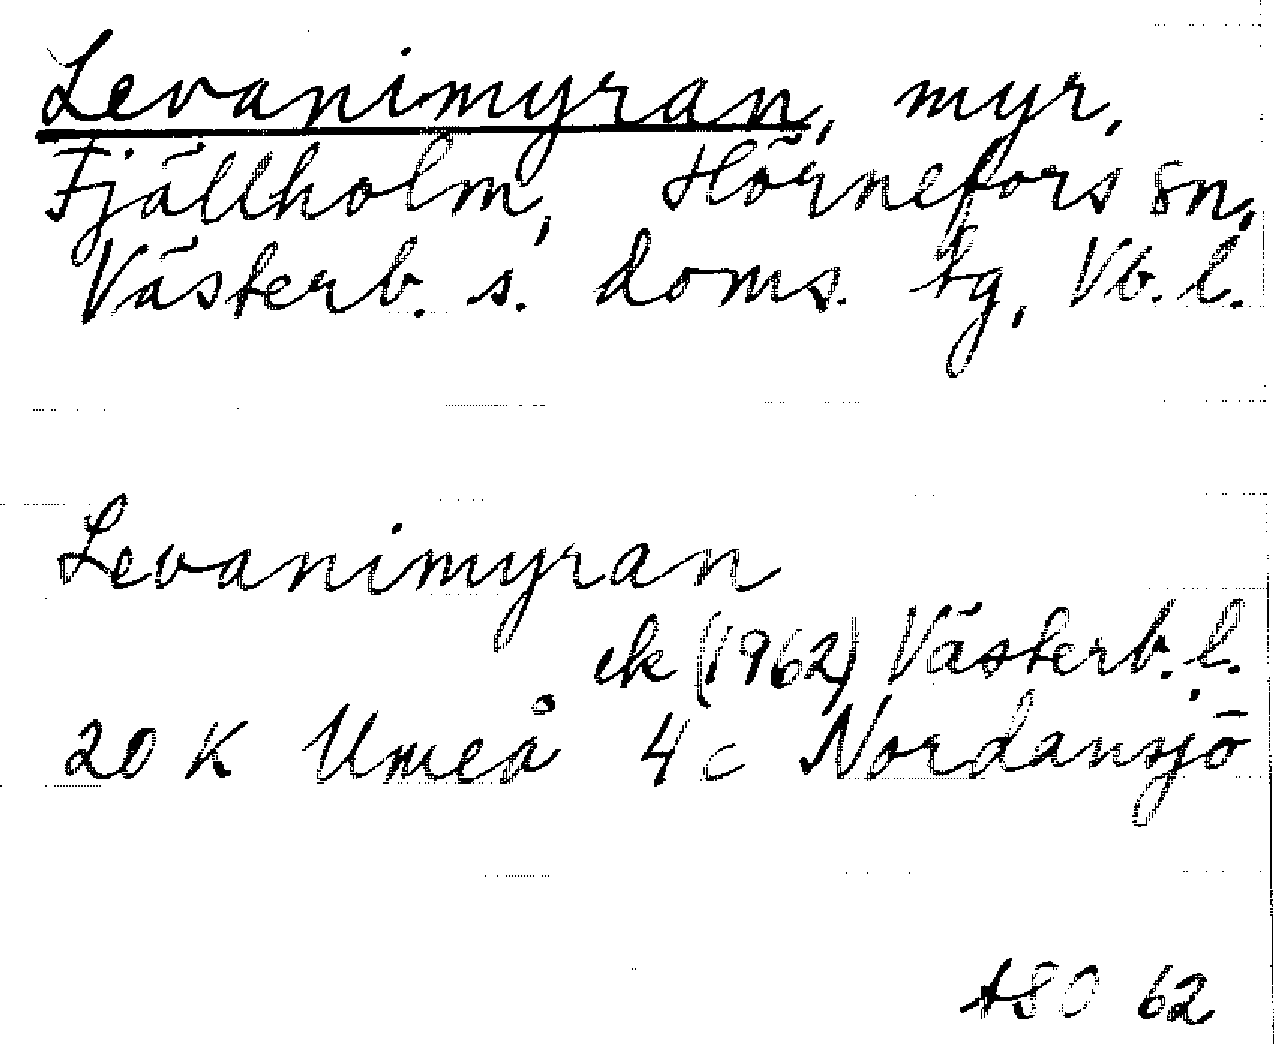 Levanimyran, myr,
Fjällholm, Hörnefors sn,
Västerb. s. doms. tg, Vb. l.
Levanimyran
ek (1962) Västerb. l.
20 K Umeå 4 c Nordansjö
ASO 62